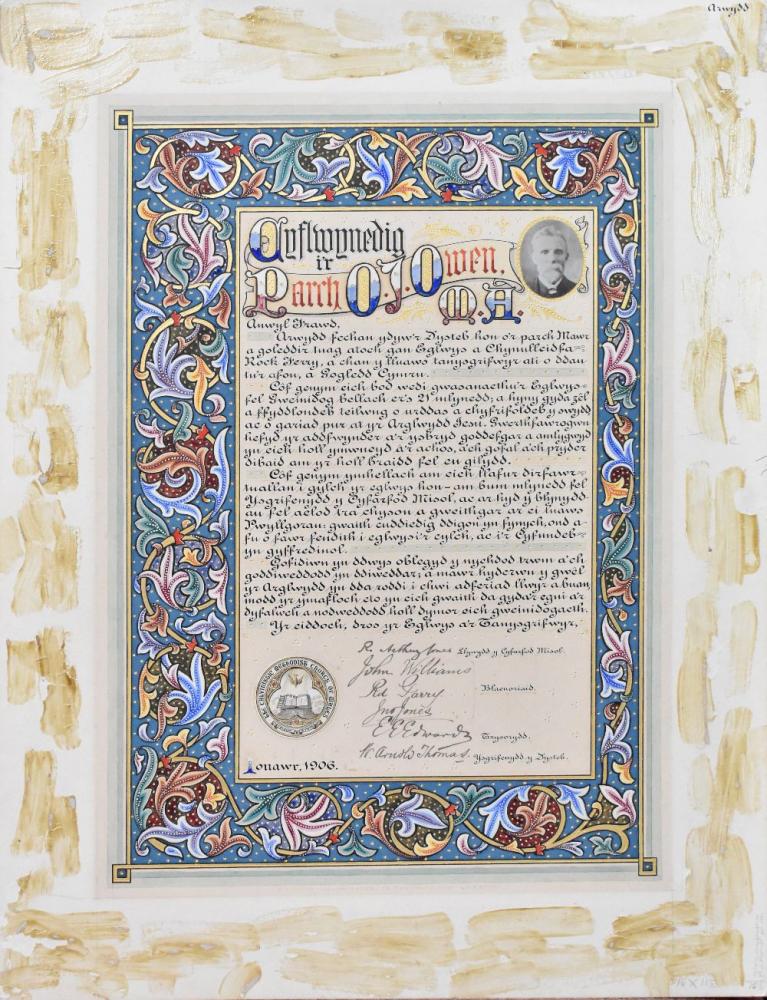 Arwydd
Cyflwynedig
i'r
Parch O. J. Owen.
M. A.
Anwyl Frawd,
Arwydd fechan ydyw'r Dysteb hon o'r parch Mawr
a goleddir tuag atoch gan Eglwys a Chynulleidfa
Rock Ferry, a chan y lluaws tanysgrifwyr ati o ddau
tu'r afon, a Gogledd Cymru.
Cof genym eich bod wedi gwasanaethu'r Eglwys
fel Gweinidog bellach ers 21 mlynedd; a hyny gyda zêl
a ffyddlondeb teilwng o urddas a chyfrifoldeb y swydd
ac o gariad pur at yr Arglwydd Iesu. Gwerthfawrogwn
hefyd yr addfwynder a'r ysbryd goddefgar a amlygwyd
yn eich holl ymwneyd a'r achos, a'ch gofal a'ch pryder
dibaid am yr holl braidd fel eu gilydd.
Cof genym ymhellach am eich llafur dirfawr
tuallan i gylch yr eglwys hon – am bum mlynedd fel
Ysgrifenydd y Cyfarfod Misol, ac ar hyd y blynydd-
au fel aelod tra chyson a gweithgar ar ei luaws
Pwyllgorau: gwaith cuddiedig ddigon yn fynych, ond a
fu o fawr fendith i eglwysi'r cylch, ac i'r Cyfundeb
yn gyffredinol.
Gofidiwn yn ddwys oblegyd y nychdod trwm a'ch
goddiweddodd yn ddiweddar; a mawr hyderwn y gwêl
yr Arglwydd yn dda roddi i chwi adferiad llwyr a buan,
modd yr ymafloch eto yn eich gwaith da gyda'r egni a'r
dyfalwch a nodweddodd holl dymor eich gweinidogaeth.
Yr eiddoch, dros yr Eglwys a'r Tanysgrifwyr,
R. Arthur Jones Llywydd y Cyfarfod Misol.
John Williams
Rd Parry Blaenoriaid.
Jno Jones
E E Edwards Trysorydd.
W. Arnold Thomas. Ysgrifenydd y Dysteb.
CALVINISTIC METHODIST CHURCH OF WALES
Ionawr, 1906.